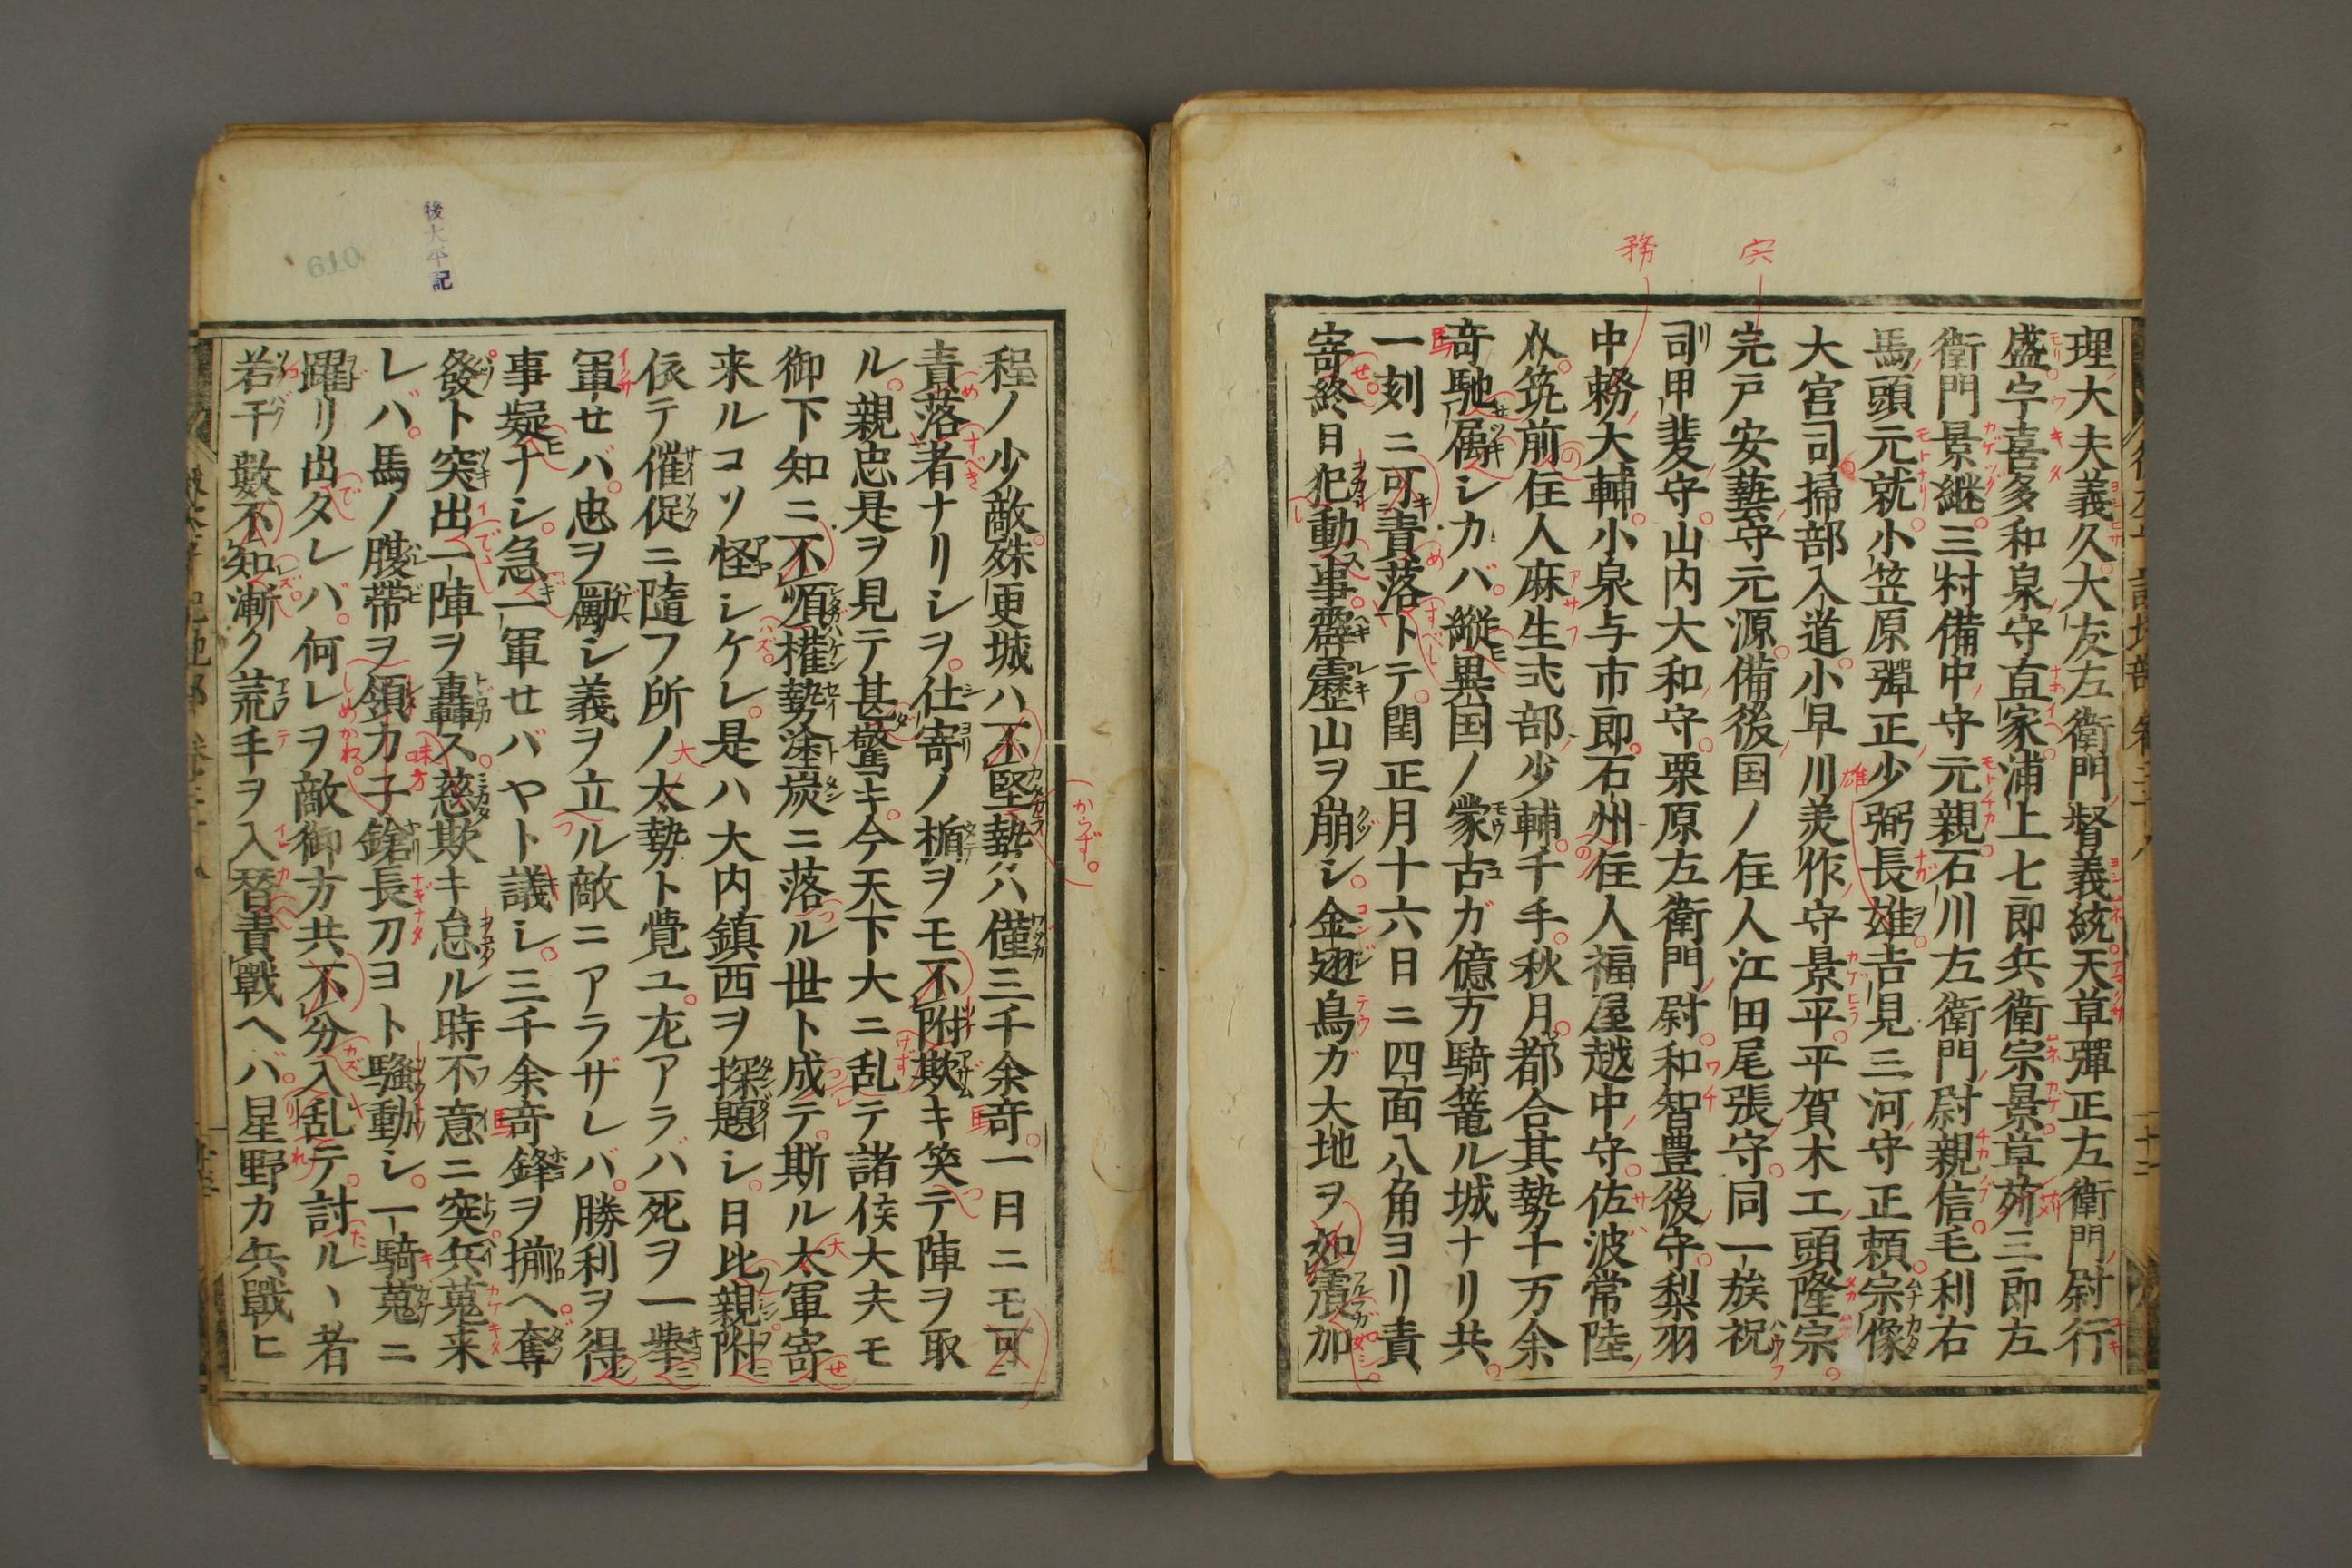 理大夫義久大友左衛門督義統天草彈正左衛門尉行
盛宇喜多和泉守直家浦上七郎兵衛宗景草苅三郎左
衛門景継三村備中守元親石川左衛門尉親信毛利右
馬頭元就小笠原彈正少弼長雄吉見三河守正頼宗像
大宮司掃部入道小早川美作守景平平賀木工頭隆宗
完戸安藝守元源備後国ノ住人江田尾張守同一族祝
司甲斐守山内大和守栗原左衛門尉和智豊後守梨羽
中務大輔小泉与市郎石州住人福屋越中守佐波常陸
从筑前住人麻生式部少輔千手秋月都合其勢十万余
奇馳属シカバ縦異国ノ蒙古ガ億万騎篭ル城ナリ共
一刻ニ可責落トテ閏正月十六日ニ四面八角ヨリ責
寄終日犯動事霹靂山ヲ崩シ金翅鳥ガ大地ヲ如震加
程ノ少敵殊更城ハ不堅勢ハ僅三千余奇一日ニモ可
責落者ナリシヲ仕寄ノ楯ヲモ不附欺キ笑テ陣ヲ取
ル親忠是ヲ見テ甚驚キ今天下大ニ乱テ諸侯大夫モ
御下知ニ不順權勢塗炭ニ落ル世ト成テ斯ル大軍寄
来ルコソ怪シケレ是ハ大内鎮西ヲ探題シ日比親附
依テ催促ニ隨フ所ノ太勢ト覺ユ左アラバ死ヲ一挙
軍セバ忠ヲ勵シ義ヲ立ル敵ニアラザレバ勝利ヲ得
事疑ナシ急一軍セバヤト議シ三千余奇鋒ヲ揃ヘ奪
發ト突出一陣ヲ轟ス慈欺キ怠ル時不意ニ突兵蒐来
レバ馬ノ腹帯ヲ領カ子鎗長刀ヨト騒動シ一騎蒐ニ
躍リ出タレバ何レヲ敵御方共不分入乱テ討ルヽ者
若干數不知漸ク荒手ヲ入替責戰ヘバ星野カ兵戰ヒ
宍
務
後太平記
610